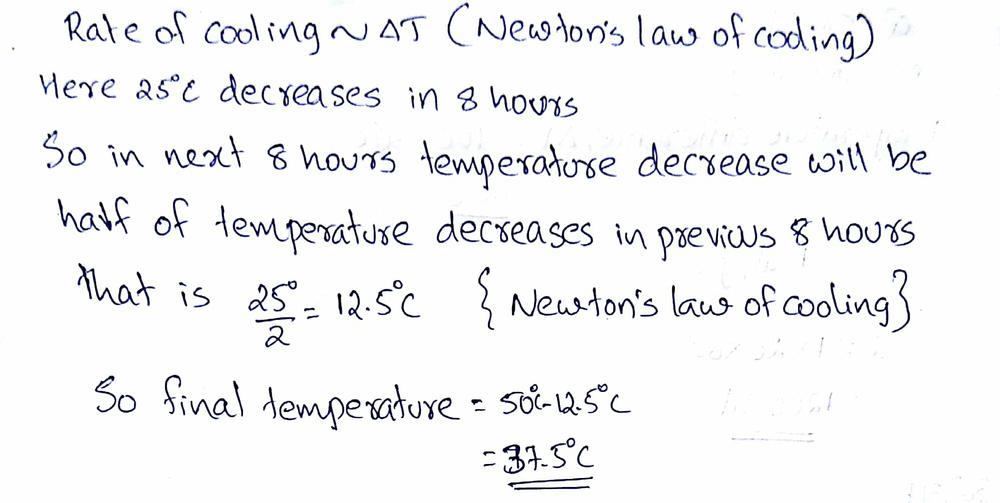 Rate of cooling ~ ΔT (Newton's law of coding)
Here 25°C decreases in 8 hours
So in next 8 hours temperature decrease will be
half of temperature decreases in previous 8 hours
that is 25°/2 = 12.5°C { Newton's law of cooling }
So final temperature = 50°C-12.5°C
= 37.5°C